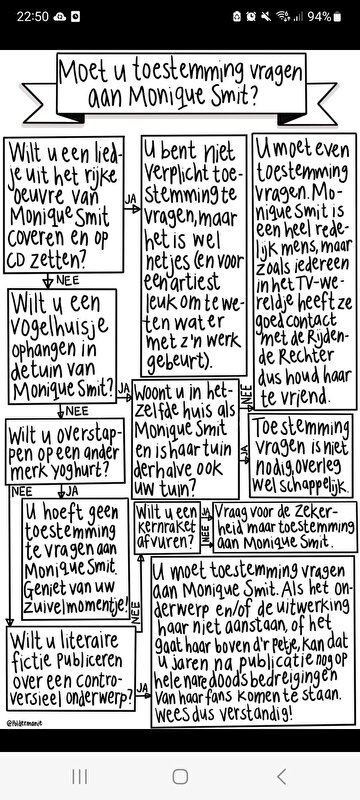 22:50
94%
Moet u toestemming vragen
aan Monique Smit?
Wilt u een lied-
je uit het rijke
oeuvre van
Monique Smit
coveren en op
CD zetten?
JA
U bent niet
verplicht toe-
stemming te
vragen, maar
het is wel
netjes (en voor
een artiest
leuk om te we-
ten wat er
met z'n werk
gebeurt).
U moet even
toestemming
vragen. Mo-
nique Smit is
een heel rede-
lijk mens, maar
zoals iedereen
in het TV-we-
reldje heeft ze
goed contact
met de Rijden-
de Rechter
dus houd haar
te vriend.
NEE
Wilt u een
vogelhuisje
ophangen in
de tuin van
Monique Smit?
JA
Woont u in het-
zelfde huis als
Monique Smit
en is haar tuin
derhalve ook
uw tuin?
NEE
JA
Toestemming
vragen is niet
nodig, overleg
wel schappelijk.
NEE
Wilt u overstap-
pen op een ander
merk yoghurt?
NEE
JA
U hoeft geen
toestemming
te vragen aan
Monique Smit.
Geniet van uw
zuivelmomentje!
Wilt u een
kernraket
afvuren?
JA
NEE
Vraag voor de zeker-
heid maar toestemming
aan Monique Smit.
NEE
Wilt u literaire
fictie publiceren
over een contro-
versieel onderwerp?
JA
U moet toestemming vragen
aan Monique Smit. Als het on-
derwerp en/of de uitwerking
haar niet aanstaan, of het
gaat haar boven d'r petje, kan dat
u jaren na publicatie nog op
hele nare doodsbedreigingen
van haar fans komen te staan.
Wees dus verstandig!
@Poldermanie